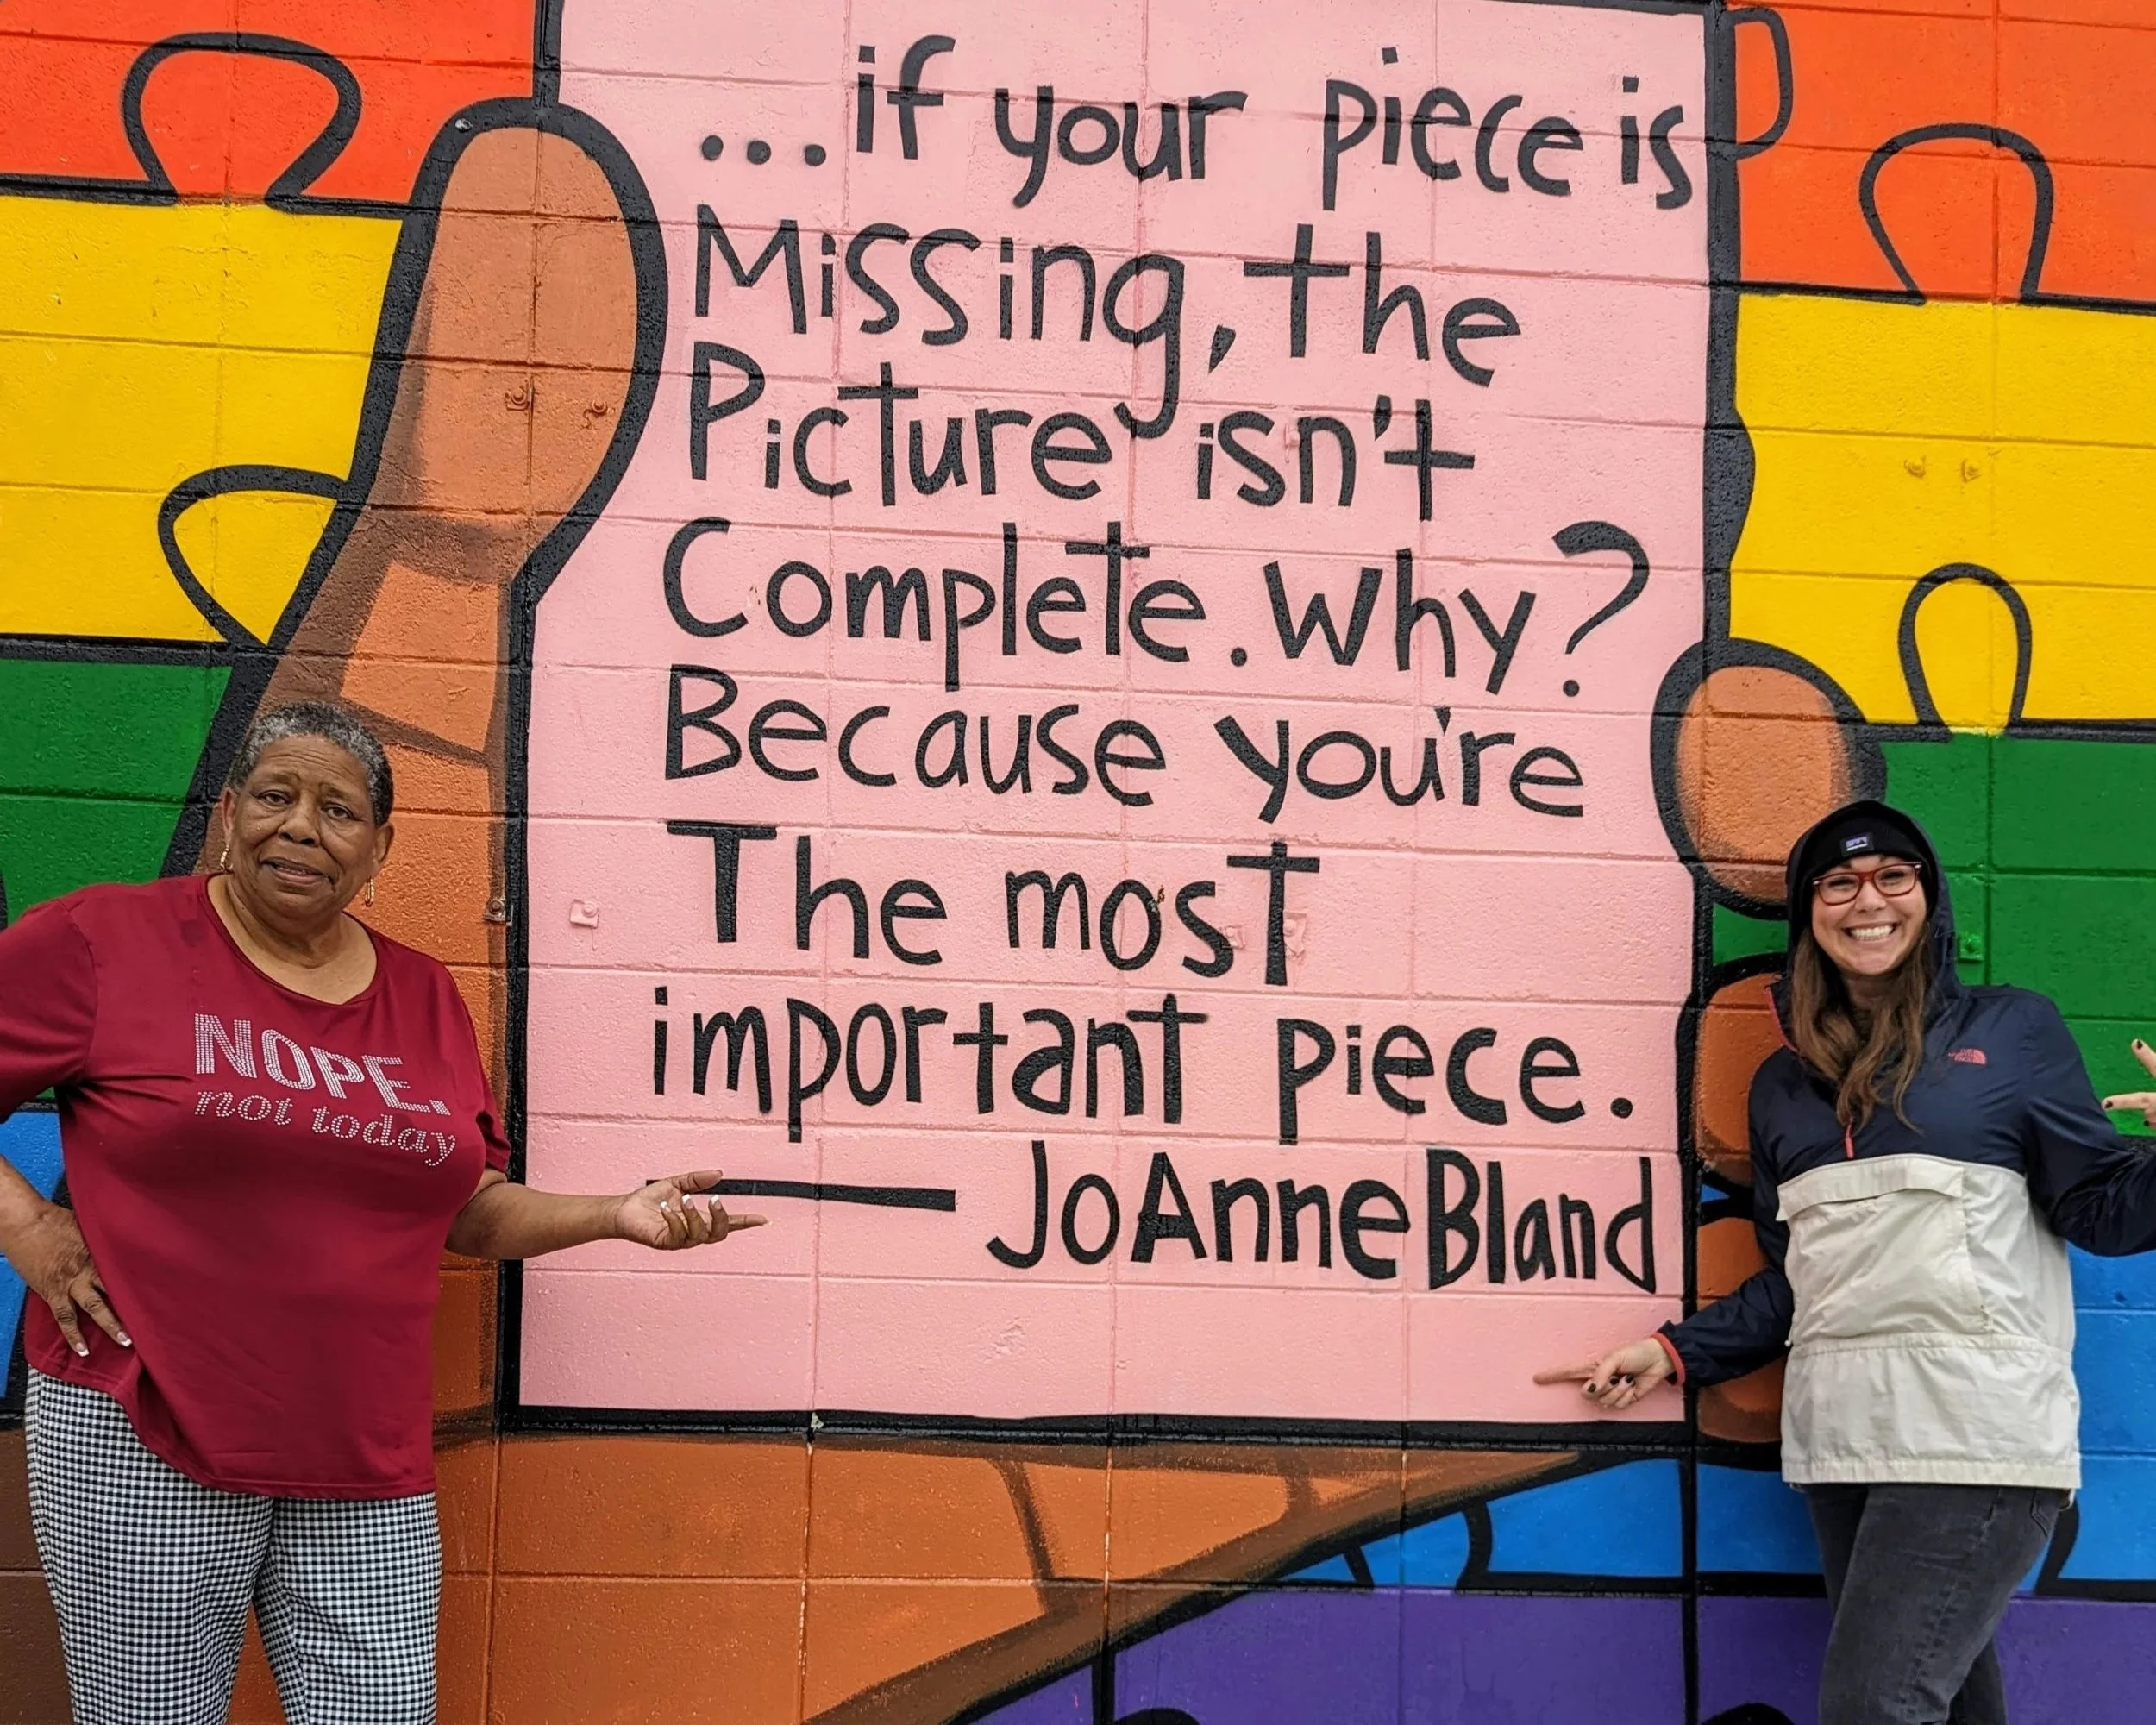 ...if your piece is
Missing, the
Picture isn't
Complete. Why?
Because you're
The most
important piece.
— JoAnne Bland
NOPE.
not today